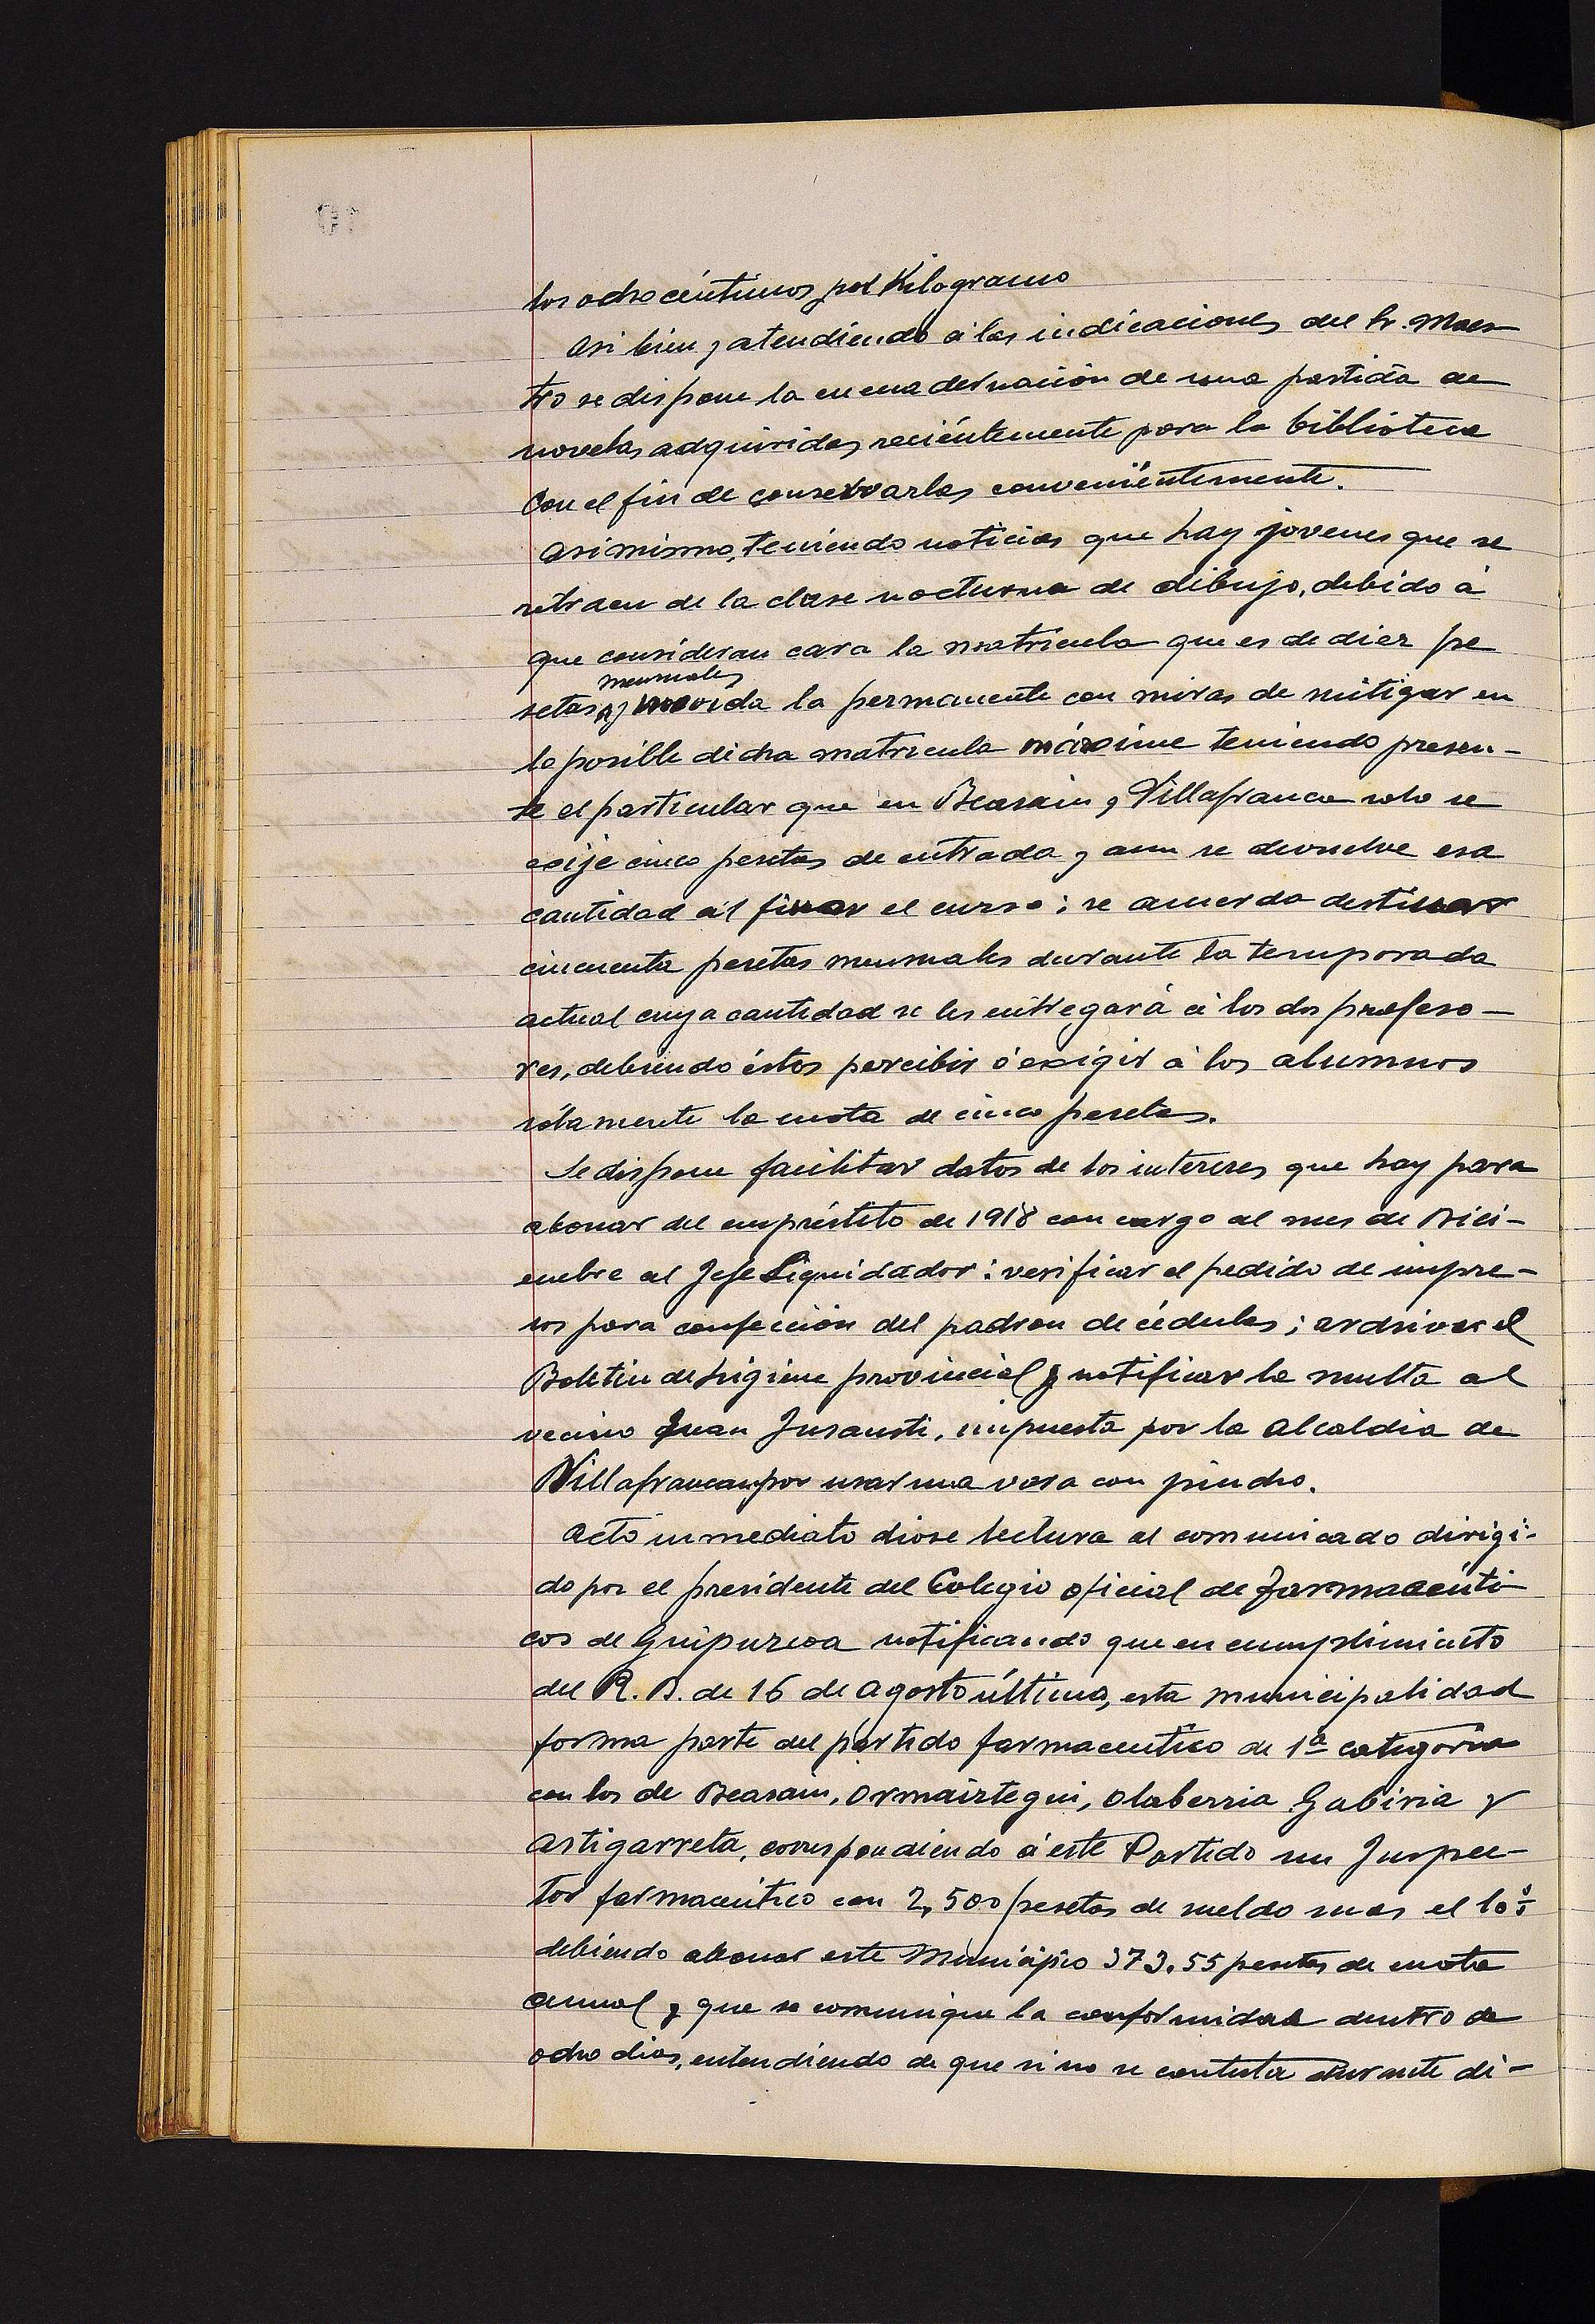 los ocho céntimos por Kilogramo
Asi bien y atendiendo á las indicaciones del Sr. Maes-
tro se dispone la encuadernación de una partida de
novelas adquiridas reciéntemente para la biblioteca
con el fin de conservarlas conveniéntemente.
Asi mismo, teniendo noticias que hay jovenes que se
retraen de la clase nocturna de dibujo, debido á
que consideran cara la matricula que es de diez pe
mensuales
setas y movida la permanente con miras de mitigar en
lo posible dicha matricula máxime teniendo presen-
te el particular que en Beasain y Villafranca solo se
exije cinco pesetas de entrada y aun se devuelve esa
cantidad al finar el curso; se acuerda destinar
cincuenta pesetas mensuales durante la temporada
actual cuya cantidad se les entregará á los dos profeso-
res, debiendo éstos percibir ó exigir á los alumnos
sólamente la cuota de cinco pesetas.
Se dispone facilitar datos de los intereses que hay para
abonar del empréstito de 1918 con cargo al mes de Dici-
embre al Jefe Liquidador: verificar el pedido de impre-
sos para confección del padron de cédulas; archivar el
Boletin de higiene provincial y notificar la multa al
vecino Juan Insausti, impuesta por la Alcaldia de
Villafranca por usar una vara con pincho.
Acto inmediato diose lectura al comunicado dirigi-
do por el presidente del Colegio oficial de farmacéuti-
cos de Guipuzcoa notificando que en cumplimiento
del R. D. de 16 de Agosto último, esta municipalidad
forma parte del partido farmaceutico de 1ª categoria
con los de Beasain, Ormaiztegui, Olaberria Gabiria y
Astigarreta, correspondiendo á este Partido un Inspec-
tor farmacéutico con 2,500 pesetas de sueldo mas el 10%
debiendo abonar este Municipio 373.55 pesetas de cuota
anual y que se comunique la conformidad dentro de
ocho dias, entendiendo de que si no se contesta durante di-